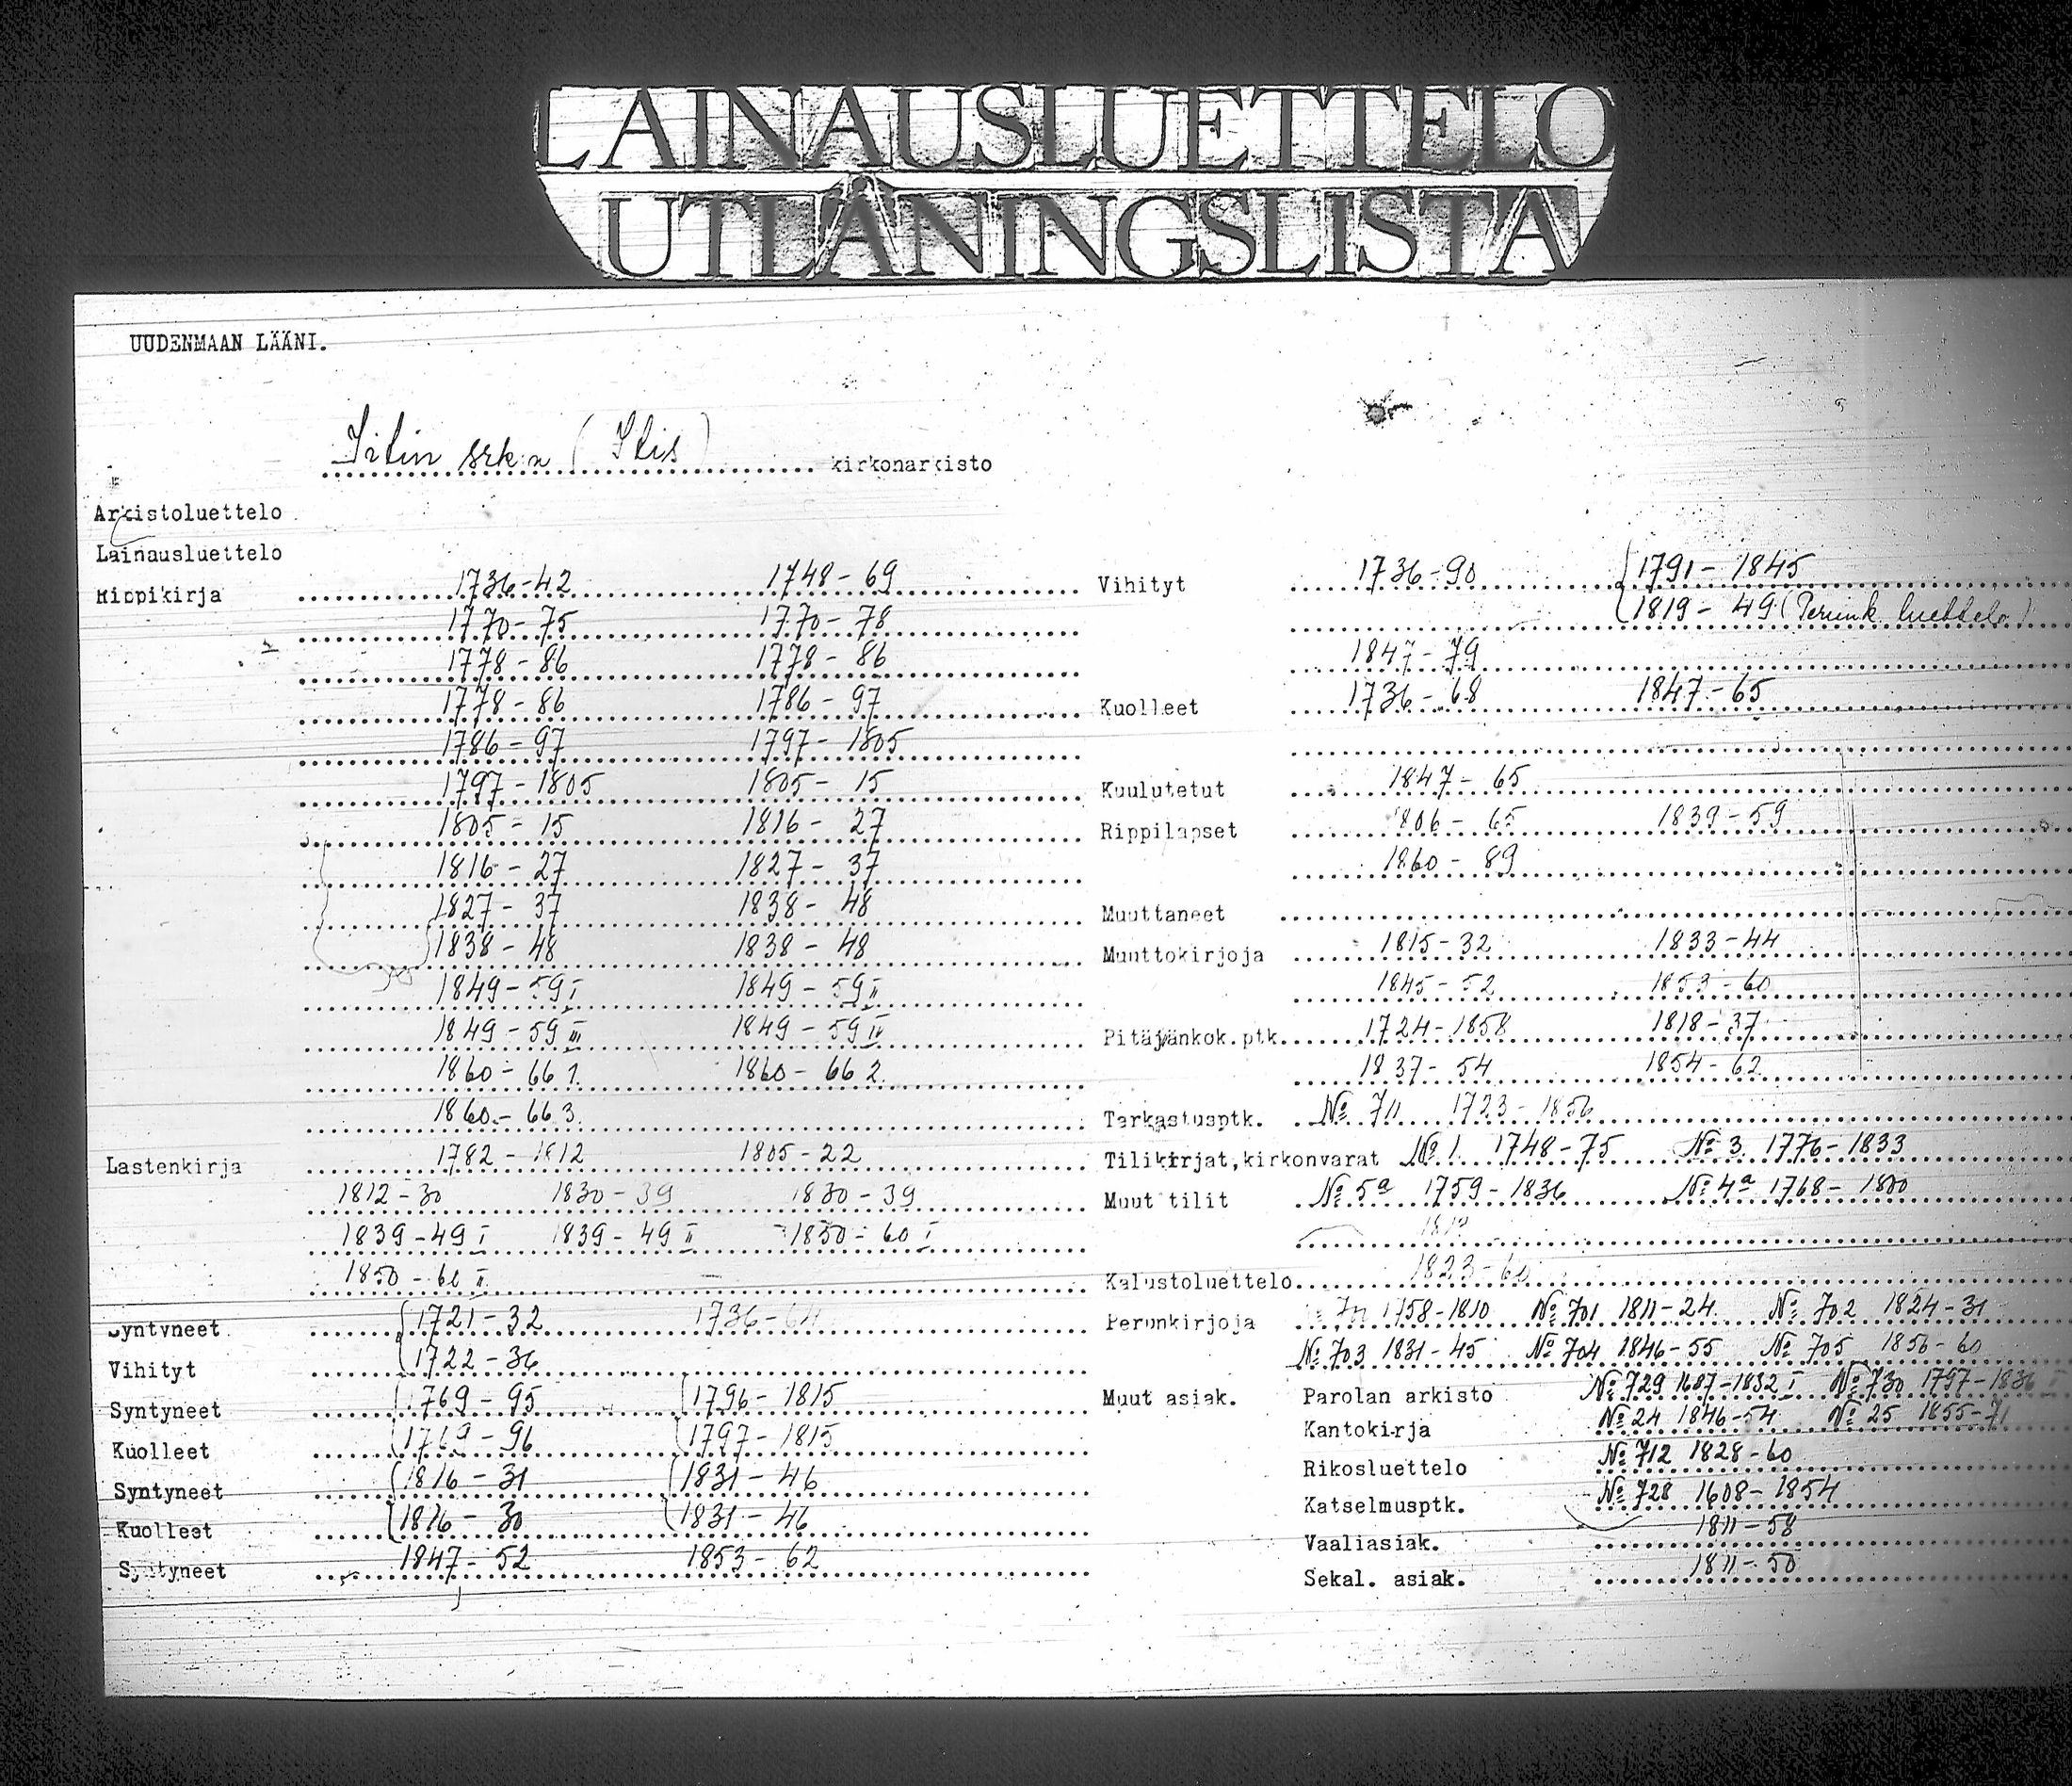 LAINAUSLUETTELO
UTLÅNINGSLISTA
UUDENMAAN LÄÄNI.
Iitin srk:n (Itis) kirkonarkisto
Arkistoluettelo
Lainausluettelo
Rippikirja 1736-42 1748-69
1770-75 1770-78
1778-86 1778-86
1778-86 1786-97
1786-97 1797-1805
1797-1805 1805-15
1805-15 1816-27
1816-27 1827-37
1827-37 1838-48
1838-48 1838-48
1849-59 I 1849-59 II
1849-59 III 1849-59 IV
1860-66 1. 1860-66 2.
1860-66 3.
Lastenkirja 1782-1812 1805-22
1812-30 1830-39 1830-39
1839-49 I 1839-49 II 1850-60 I
1850-60 II
Syntyneet 1721-32 1736-64
Vihityt 1722-36
Syntyneet 1769-95 1796-1815
Kuolleet 1769-96 1797-1815
Syntyneet 1816-31 1831-46
Kuolleet 1816-30 1831-46
Syntyneet 1847-52 1853-62
Vihityt 1736-90 1791-1845
1819-49 luettelo)
1847-79
Kuolleet 1736-68 1847-65
Kuulutetut 1847-65
Rippilapset 1806-65 1839-59
1860-89
Muuttaneet
Muuttokirjoja 1815-32 1833-44
1845-52 1853-60
Pitäjänkok.ptk. 1724-1858 1818-37
1837-54 1854-62
Tarkastusptk. № 711 1723-1856
Tilikirjat,kirkonvarat № 1. 1748-75 № 3. 1776-1833
Muut tilit № 5a 1759-1836 № 4a 1768-1800
Kalustoluettelo 1823-60
Perunkirjoja 1758-1810 № 701 1811-24 № 702 1824-31
№ 703 1831-45 № 704 1846-55 № 705 1856-60
Muut asiak. Parolan arkisto № 729 1687-1832 I № 730 1797-1836
Kantokirja № 24 1846-54 № 25 1855-71
Rikosluettelo № 712 1828-60
Katselmusptk. № 728 1608-1854
Vaaliasiak. 1811-58
Sekal. asiak. 1811-50